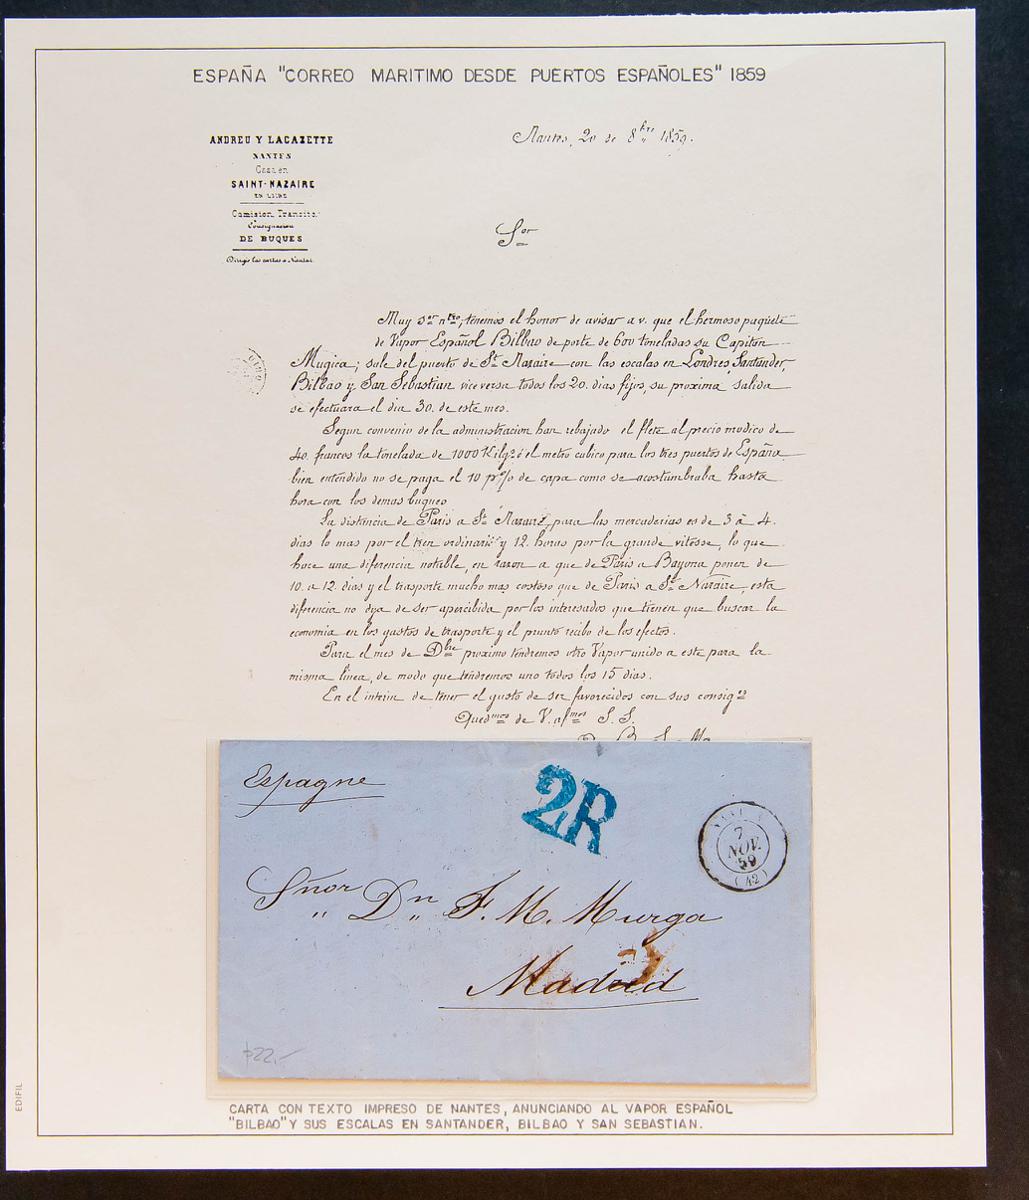 ESPAÑA "CORREO MARITIMO DESDE PUERTOS ESPAÑOLES" 1859
ANDREU Y LACAZETTE
NANTES
Casa en
SAINT-NAZAIRE
EN LOIRE
Comision Transito
Consignacion
DE BUQUES
Dirigir las cartas a Nantes
Nantes, 20 de 8bre 1859.
Sor
Muy Sor ntro, tenemos el honor de avisar a v. que el hermoso paquete
de Vapor Español Bilbao de porte de 600 toneladas su Capitan
Mugica; sale del puerto de St. Nazaire con las escalas en Londres, Santander,
Bilbao y San Sebastian vice versa todos los 20. dias fijos, su proxima salida
se efectuara el dia 30. de este mes.
Segun convenio de la administracion han rebajado el flete al precio modico de
40. francos la tonelada de 1000 Kilgs ó el metro cubico para los tres puertos de España
bien entendido no se paga el 10 p% de capa como se acostumbraba hasta
hora con los demas buques
La distancia de Paris a St. Nazaire, para las mercaderias es de 3 à 4.
dias lo mas por el tren ordinario y 12. horas por la grande vitesse, lo que
hace una diferencia notable, en razon a que de Paris a Bayona ponen de
10. a 12. dias y el trasporte mucho mas costoso que de Paris a St. Nazaire, esta
diferencia no deja de ser apercibida por los interesados que tienen que buscar la
economia en los gastos de trasporte y el pronto recibo de los efectos.
Para el mes de Dbre proximo tendremos otro Vapor unido a este para la
misma linea, de modo que tendremos uno todos los 15 dias.
En el interim de tener el gusto de ser favorecidos con sus consigns
Quedmos de V. afmos S. S.
Espagne
2R
7
NOV.
59
(42)
Sñor Dn F. M. Murga
Madrid
22,-
EDIFIL
CARTA CON TEXTO IMPRESO DE NANTES, ANUNCIANDO AL VAPOR ESPAÑOL
"BILBAO" Y SUS ESCALAS EN SANTANDER, BILBAO Y SAN SEBASTIAN.